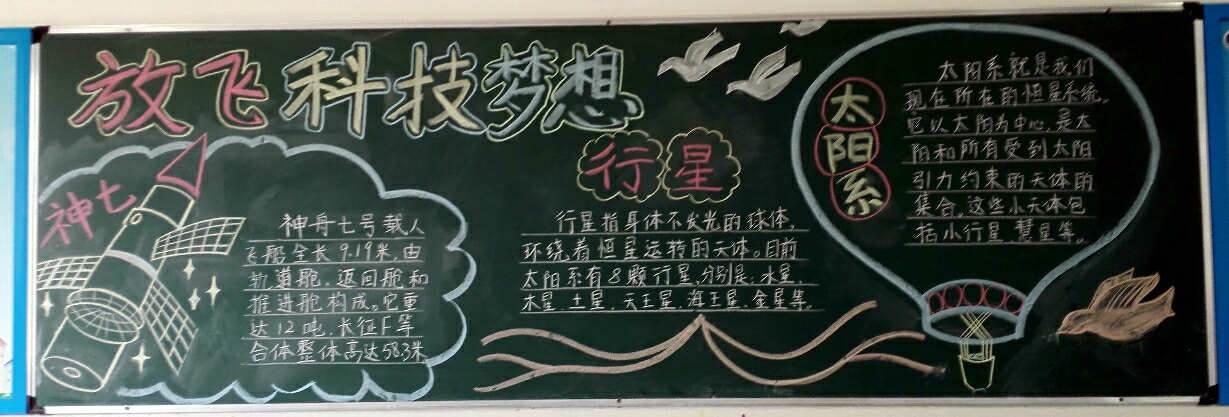 放飞科技梦想
神七
神舟七号载人
飞船全长9.19米,由
轨道舱,返回舱和
推进舱构成。它重
达12吨.长征F等
合体整体高达58.3米
行星
行星指身体不发光的球体,
环绕着恒星运转的天体。目前
太阳系有8颗行星,分别是:水星,
木星.土星.天王星.海王星.金星等。
太阳系
太阳系就是我们
现在所在的恒星系统。
它以太阳为中心,是太
阳和所有受到太阳
引力约束的天体的
集合,这些小天体包
括小行星.彗星等。